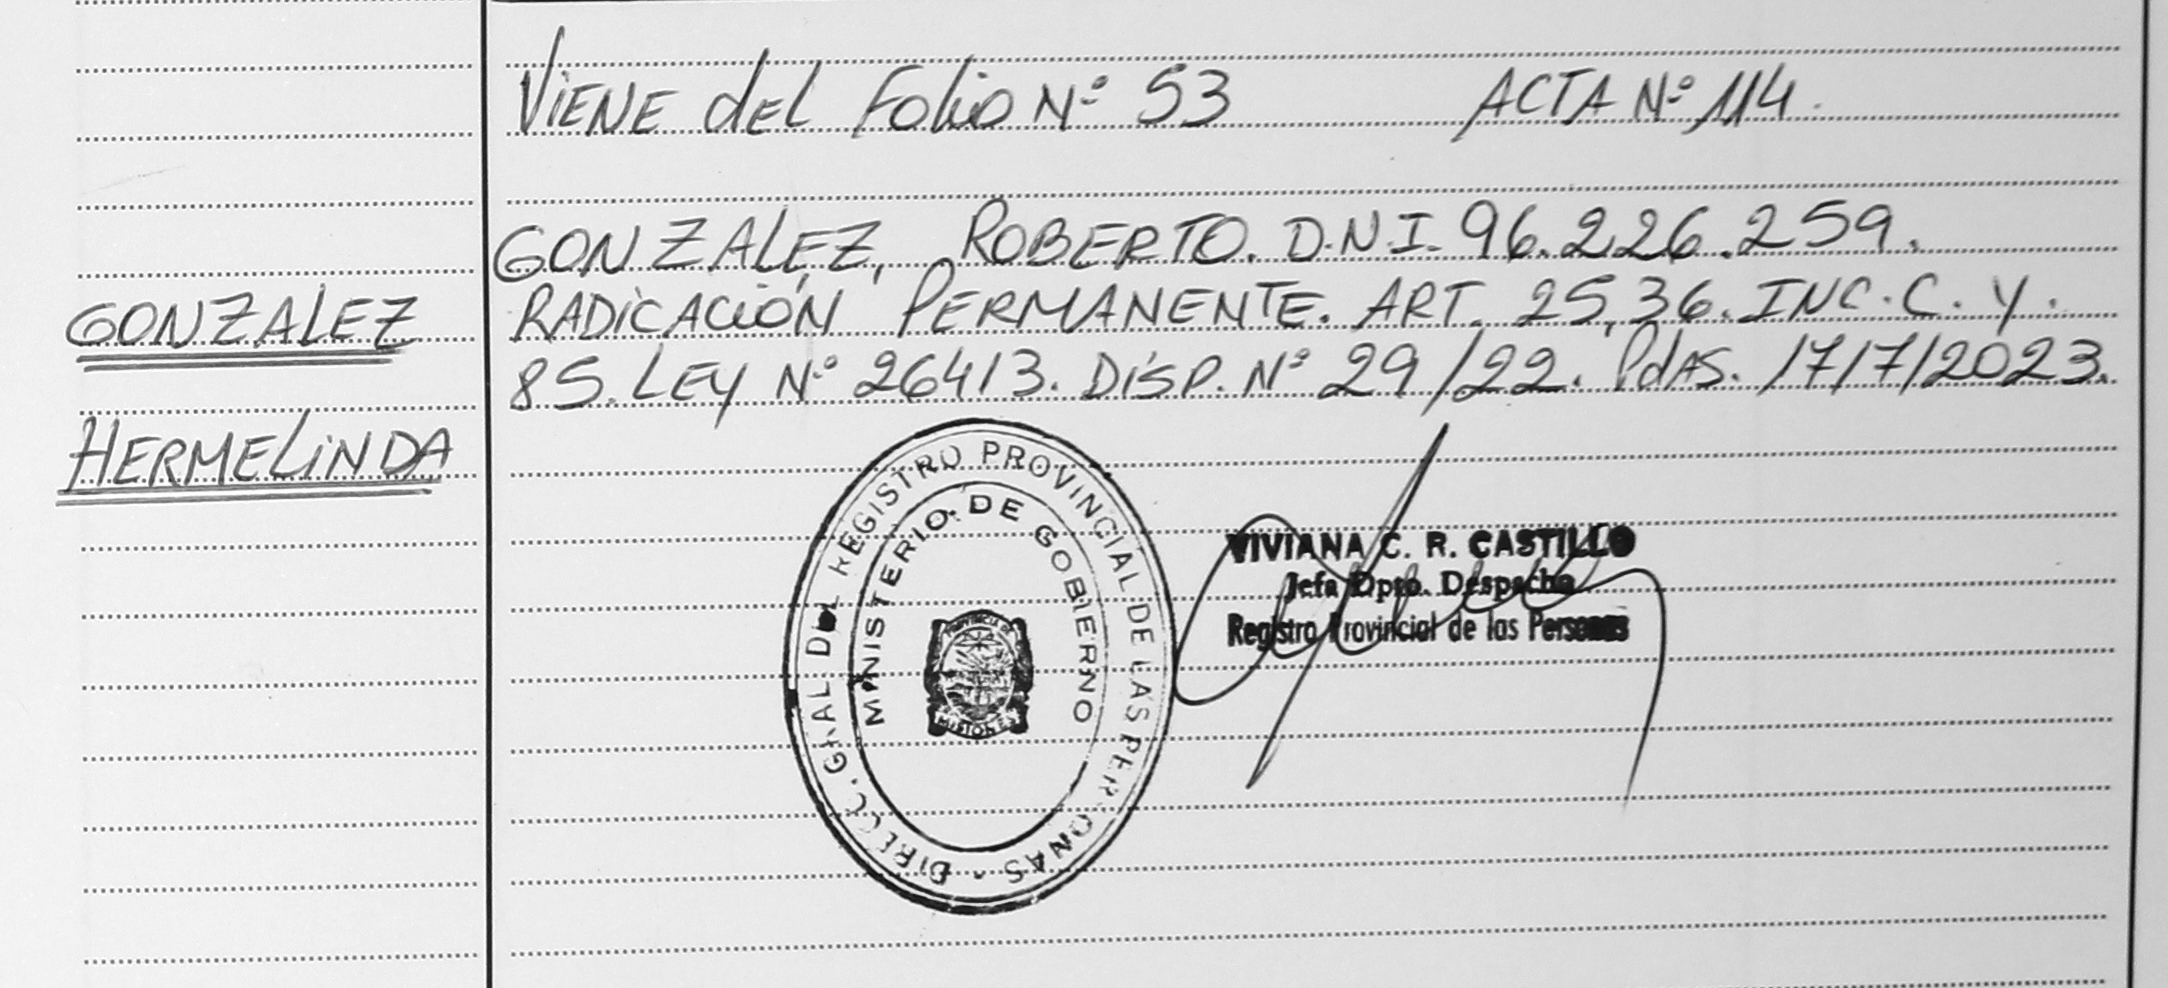 ViENE dEL Folio Nº 53 ACTA Nº 114.
GONZALEZ, ROBERTO. D.N.I. 96.226.259.
GONZALEZ
RADiCACIÓN PERMANENTE. ART. 25,36. INC. C. Y.
85. LEY Nº 26413. DiSP. Nº 29/22. PdAS. 17/7/2023.
HERMELiNDA
DIRECC. GRAL DEL REGISTRO PROVINCIAL DE LAS PERSONAS
MINISTERIO DE GOBIERNO
PROVINCIA DE
MISIONES
VIVIANA C. R. CASTILLO
Jefa Dpto. Despacho
Registro Provincial de las Personas